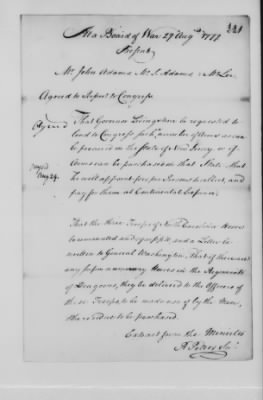 221
At a Board of War 29 Augt 1777
Present
Mr John Adams Mr S. Adams Mr Lee
Agreed to Report to Congress
Agreed
That Governor Livingston be requested to
lend to Congress such a number of Arms as can
be procured in the State of New Jersey, or if
Arms can be purchased in that State that
he will appoint proper Persons to collect, and
pay for them at Continental Expence.
Augt 29.
That the three Troops of North Carolina Horse
be remounted and equipped, and a Letter be
written to General Washington, that if there are
any supernumerary Horses in the Regiments
of Dragoons, they be delivered to the Officers of
these Troops, to be made use of by the Men,
the residue to be purchased.
Extract from the Minutes
R. Peters Secy